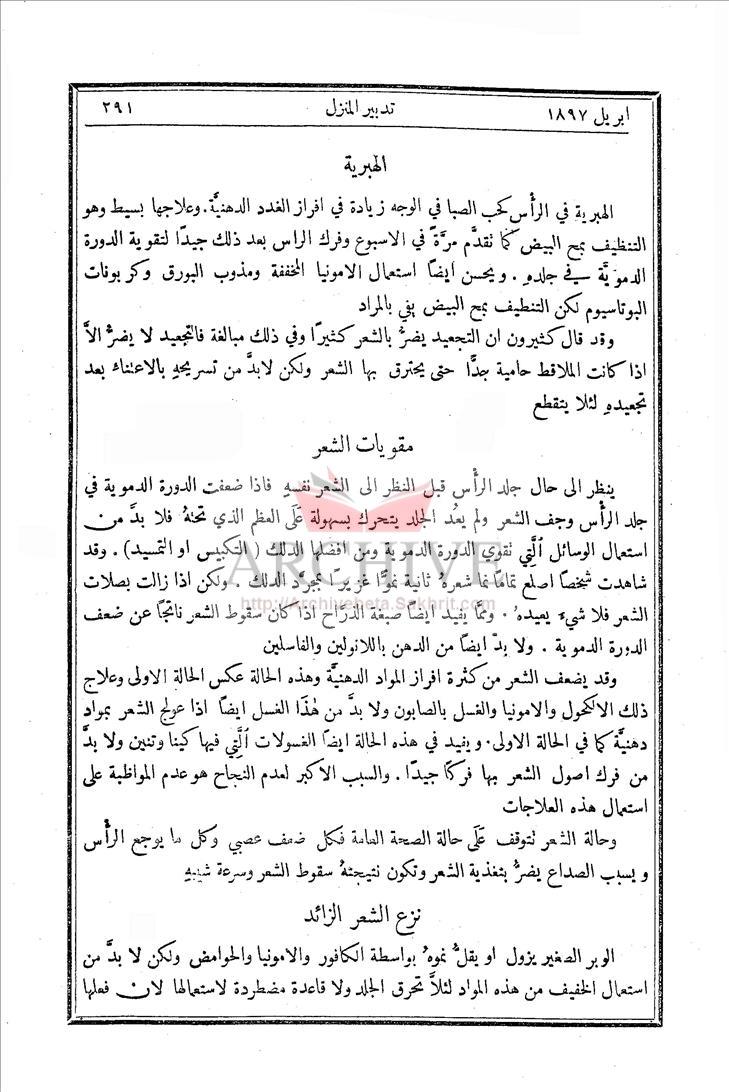 ابريل ١٨٩٧ تدبير المنزل ٢٩١
الهبرية
الهبرية في الرأس كحب الصبا في الوجه زيادة في افراز الغدد الدهنيَّة. وعلاجها بسيط وهو
التنظيف بمح البيض كما تقدَّم مرَّة في الاسبوع وفرك الراس بعد ذلك جيدًا لتقوية الدورة
الدمويَّة في جلدهِ . ويحسن ايضًا استعمال الامونيا المخففة ومذوب البورق وكربونات
البوتاسيوم لكن التنطيف بمح البيض يفي بالمراد
وقد قال كثيرون ان التجعيد يضرُّ بالشعر كثيرًا وفي ذلك مبالغة فالتجعيد لا يضرُّ الاَّ
اذا كانت الملاقط حامية جدًّا حتى يحترق بها الشعر ولكن لابدَّ من تسريحهِ بالاعتناء بعد
تجعيدهِ لئلا يتقطع
مقويات الشعر
ينظر الى حال جلد الرأس قبل النظر الى الشعر نفسهِ فاذا ضعفت الدورة الدموية في
جلد الرأس وجف الشعر ولم يعُد الجلد يتحرك بسهولة عَلَى العظم الذي تحتهُ فلا بدَّ من
استعمال الوسائل اَلَّتِي تقوي الدورة الدموية ومن افضلها الدلك ( التكبيس او التمسيد ) . وقد
شاهدت شخصًا اصلع تمامًا نما شعرهُ ثانية نموًّا غزيرًا بمجرَّد الدلك . ولكن اذا زالت بصلات
الشعر فلا شيءَ يعيدهُ . وممَّا يفيد ايضًا صبغة الذرَّاح اذا كان سقوط الشعر ناتجًا عن ضعف
الدورة الدموية . ولا بدّ ايضًا من الدهن باللانولين والفاسلين
وقد يضعف الشعر من كثرة افراز المواد الدهنيَّة وهذه الحالة عكس الحالة الاولى وعلاج
ذلك الالكحول والامونيا والغسل بالصابون ولا بدَّ من هٰذَا الغسل ايضًا اذا عولج الشعر بمواد
دهنيَّة كما في الحالة الاولى. ويفيد في هذه الحالة ايضًا الغسولات اَلَّتِي فيها كينا وتنين ولا بدَّ
من فرك اصول الشعر بها فركًا جيدًا . والسبب الاكبر لعدم النجاح هو عدم المواظبة على
استعمال هذه العلاجات
وحالة الشعر تتوقف عَلَى حالة الصحة العامة فكل ضعف عصبي وكل ما يوجع الرأس
ويسبب الصداع يضرُّ بتغذية الشعر وتكون نتيجتهُ سقوط الشعر وسرعة شيبهِ
نزع الشعر الزائد
الوبر الصغير يزول او يقلُّ نموهُ بواسطة الكافور والامونيا والحوامض ولكن لا بدَّ من
استعمال الخفيف من هذه المواد لئلاَّ تحرق الجلد ولا قاعدة مضطردة لاستعمالها لان فعلها
ARCHIVE
http://Archivebeta.Sakhrit.com